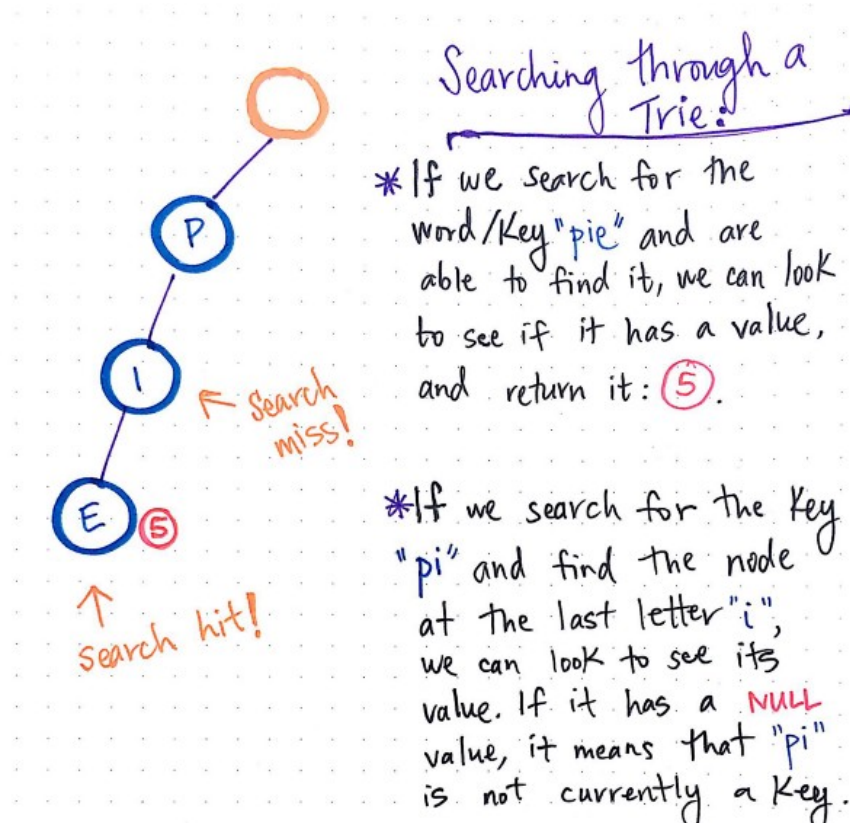 Searching through a
Trie:
P
I
E
5
← Search
miss!
↑
search hit!
* If we search for the
word/Key "pie" and are
able to find it, we can look
to see if it has a value,
and return it: 5.
* If we search for the Key
"pi" and find the node
at the last letter "i",
we can look to see its
value. If it has a NULL
value, it means that "pi"
is not currently a Key.